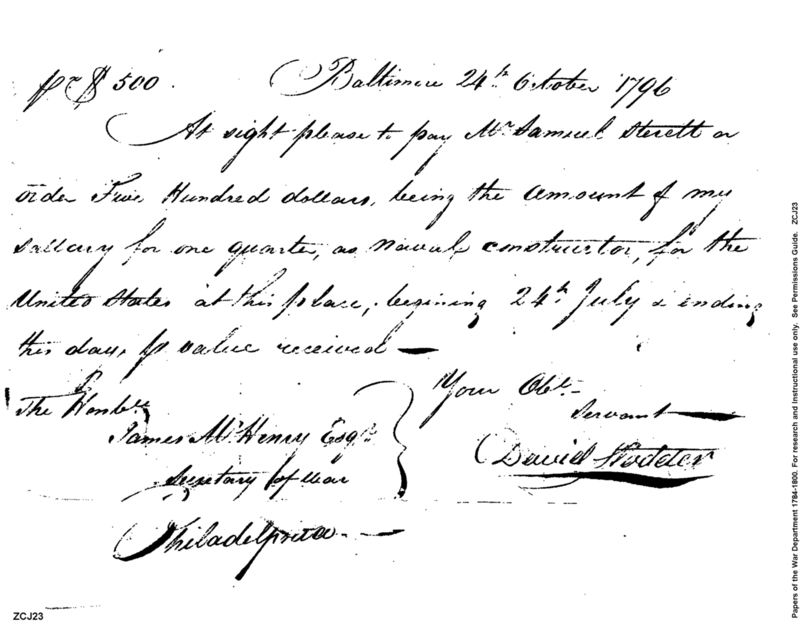 pr $ 500. Baltimore 24th October 1796
At sight please to pay Mr Samuel Sterett or
order Five Hundred dollars, being the amount of my
sallery for one quarter, as Naval constructor, for the
United States at this place, begining 24th July & ending
this day, pr value received —
The Honble
James McHenry Esqr
Secretary of War
Philadelphia —
Your Obt
Servant —
David Stodder
Papers of the War Department 1784-1800. For research and instructional use only. See Permissions Guide. ZCJ23
ZCJ23